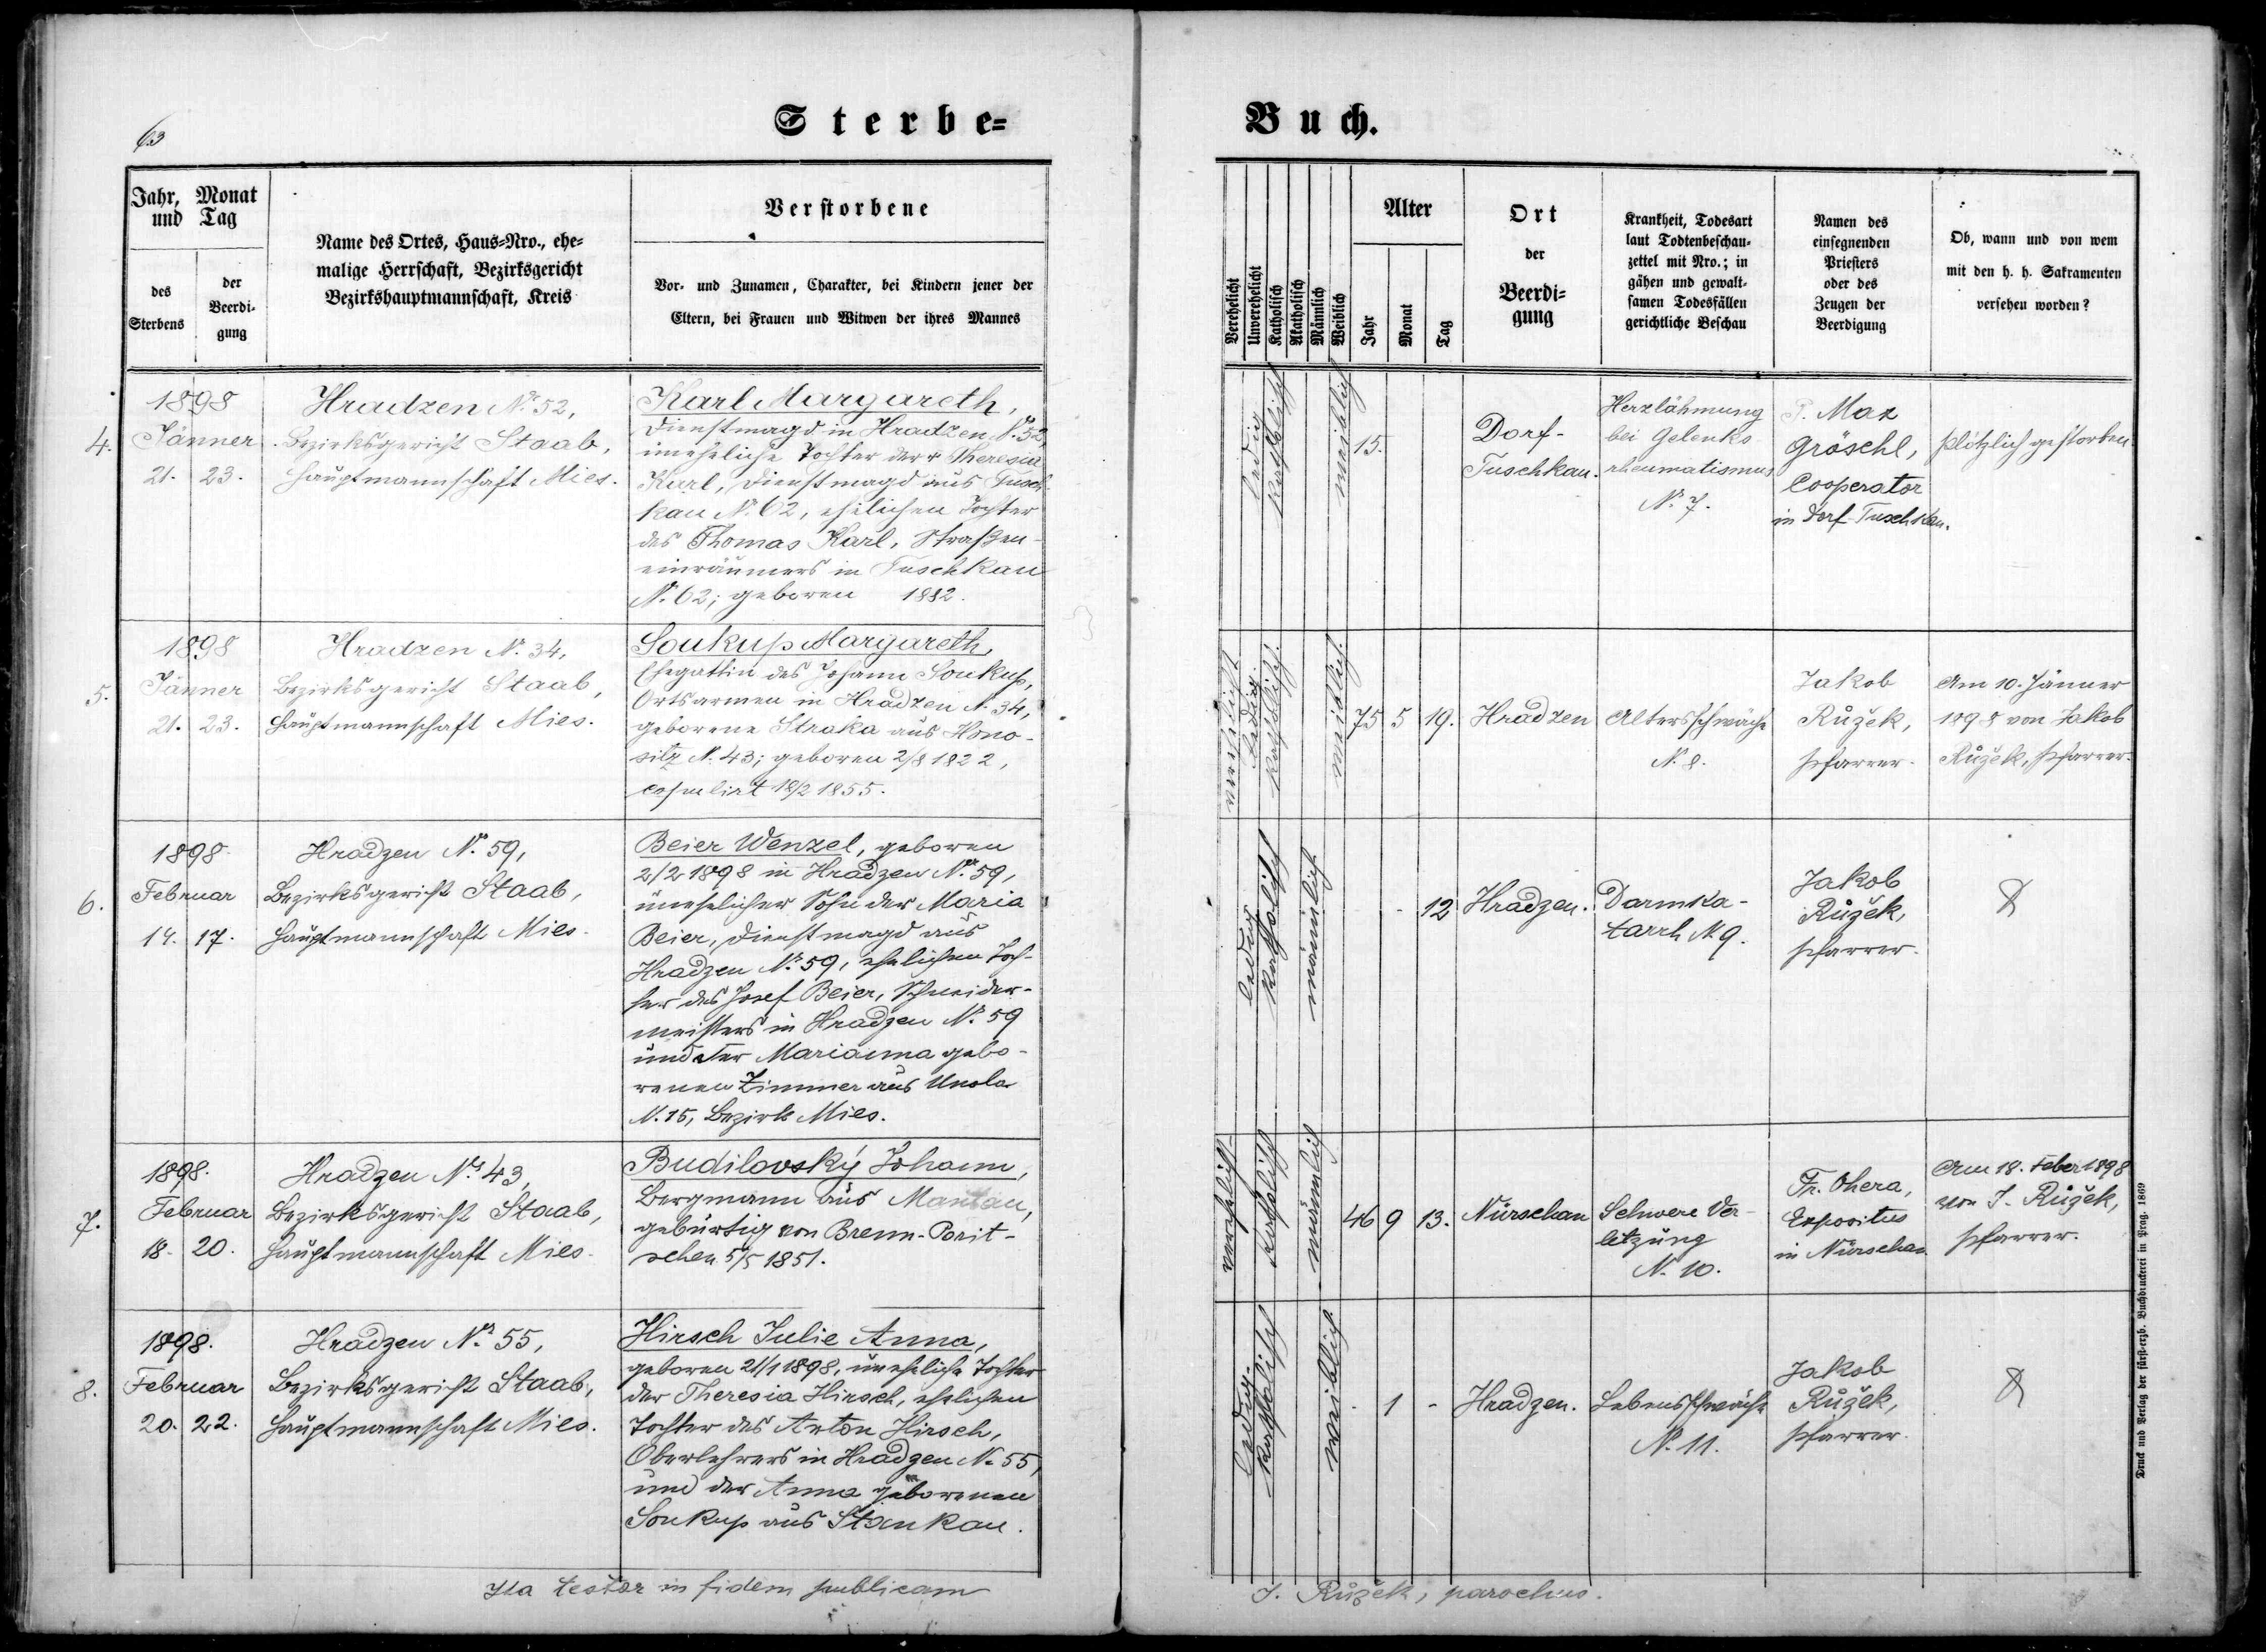 63
Sterbe=
Buch.
Jahr, Monat
und Tag
des
Sterbens
der
Beerdi-
gung
Name des Ortes, Haus=Nro., ehe=
malige Herrschaft, Bezirksgericht
Bezirkshauptmannschaft, Kreis
Verstorbene
Vor- und Zunamen, Charakter, bei Kindern jener der
Eltern, bei Frauen und Witwen der ihres Mannes
Verehelicht
Unverehelicht
Katholisch
Akatholisch
Männlich
Weiblich
Alter
Jahr
Monat
Tag
Ort
der
Beerdi=
gung
Krankheit, Todesart
laut Todtenbeschau-
zettel mit Nro.; in
gähen und gewalt-
samen Todesfällen
gerichtliche Beschau
Namen des
einsegnenden
Priesters
oder des
Zeugen der
Beerdigung
Ob, wann und von wem
mit den h. h. Sakramenten
versehen worden?
4.
1898
Jänner
21. 23.
Hradzen No. 52,
Bezirksgericht Staab,
Hauptmannschaft Mies.
Karl Margareth,
Dienstmagd in Hradzen No. 52,
uneheliche Tochter der Theresia
Karl, Dienstmagd aus Tusch-
kau N. 62, ehelichen Tochter
des Thomas Karl, Straßen-
einräumers in Tuschkau
N. 62; geboren 1882.
ledig
katholisch
weiblich
15.
Dorf-
Tuschkau.
Herzlähmung
bei Gelenks-
rheumatismus
No. 7.
P. Max
Gröschl,
Cooperator
in Dorf-Tuschkau.
plötzlich gestorben
5.
1898
Jänner
21. 23.
Hradzen N. 34,
Bezirksgericht Staab,
Hauptmannschaft Mies.
Soukup Margareth,
Ehegattin des Johann Soukup,
Ortsarmen in Hradzen N. 34,
geborene Straka aus Hono-
sitz N. 43; geboren 2/8 1822,
copulirt 18/2 1855.
verehelicht
ledig.
katholisch.
weiblich.
75 5 19.
Hradzen
Altersschwäche
N. 8.
Jakob
Růžek,
Pfarrer.
Am 10. Jänner
1898 von Jakob
Růžek, Pfarrer.
6.
1898
Februar
14. 17.
Hradzen No. 59,
Bezirksgericht Staab,
Hauptmannschaft Mies.
Beier Wenzel, geboren
2/2 1898 in Hradzen No. 59,
unehelicher Sohn der Maria
Beier, Dienstmagd aus
Hradzen No. 59, ehelichen Toch-
ter des Josef Beier, Schneider-
meisters in Hradzen No. 59
und der Marianna gebo-
renen Zimmer aus
N. 15, Bezirk Mies.
ledig
katholisch
männlich
- 12
Hradzen.
Darmka-
tarrh N. 9.
Jakob
Růžek,
Pfarrer.
7.
1898.
Februar
18. 20.
Hradzen No. 43,
Bezirksgericht Staab,
Hauptmannschaft Mies.
Budilovský Johann,
Bergmann aus Mantau,
gebürtig von Brenn-Porit-
schen 5/5 1851.
verehelicht
katholisch
männlich
46 9 13.
Nürschan
Schwere Ver-
letzung
N. 10.
Fr. Ohera,
Expositus
in Nürschan
Am 18. Feber 1898
von J. Růžek,
Pfarrer.
8.
1898.
Februar
20. 22.
Hradzen No. 55,
Bezirksgericht Staab,
Hauptmannschaft Mies.
Hirsch Julie Anna,
geboren 21/1 1898, uneheliche Tochter
der Theresia Hirsch, ehelichen
Tochter des Anton Hirsch,
Oberlehrers in Hradzen No. 55,
und der Anna geborenen
Soukup aus Stankau.
ledig.
katholisch
weiblich
1 -
Hradzen.
Lebensschwäche
N. 11.
Jakob
Růžek,
Pfarrer.
Ita testor in fidem publicam
J. Růžek, parochus.
Druck und Verlag der fürst-erzb. Buchdruckerei in Prag. 1869